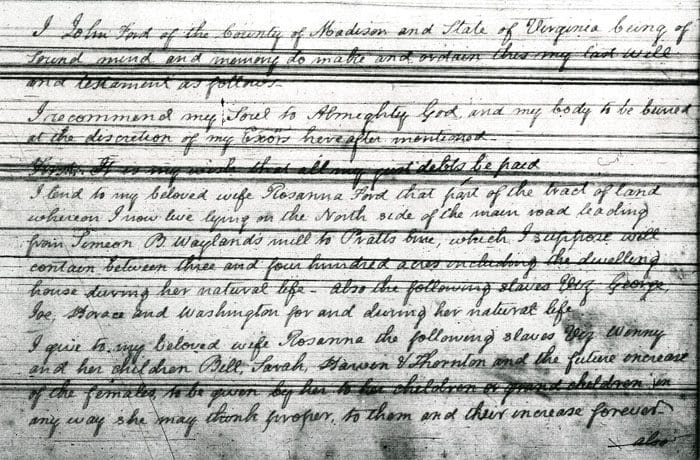 I John Ford of the County of Madison and State of Virginia being of
sound mind and memory do make and ordain this my last will
and testament as follows.
I recommend my Soul to Almighty God, and my body to be buried
at the discretion of my Exors hereafter mentioned
First. It is my wish that all my just debts be paid
I lend to my beloved wife Rosanna Ford that part of the tract of land
whereon I now live lying on the North side of the main road leading
from Simeon B. Wayland's mill to Pratts line, which I suppose will
contain between three and four hundred acres including the dwelling
house during her natural life - also the following slaves Viz George
Joe, Horace and Washington for and during her natural life
I give to my beloved wife Rosanna the following slaves Viz Winny
and her children Bill, Sarah, & Thornton and the future increase
of the females, to be given by her to her children or grand children in
any way she may think proper, to them and their increase forever-
also